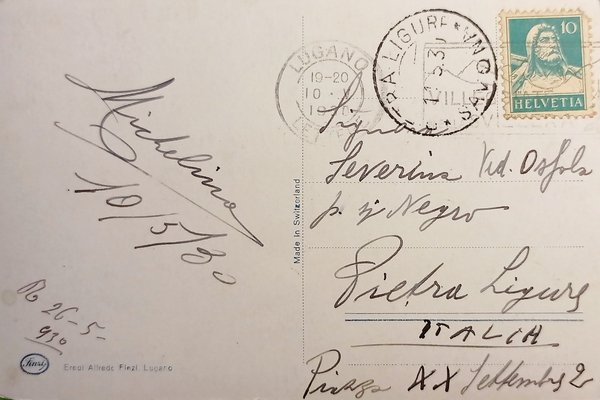 LUGANO
19-20
10 · V
19
RA LIGURE
SAVONA
VILLE
10
HELVETIA
Michelina
10/5/30
R 26-5-
930
Made in Switzerland
Finzi
Eredi Alfredo Finzi, Lugano
Signora
Severina Ved.
Negro
Pietra Ligure
ITALIA
Piazza XX Settembre 2